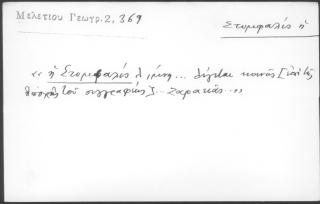 Μελετίου Γεωγρ.2, 369
Στυμφαλίς ἡ
« ἡ Στυμφαλίς λίμνη... λέγεται κοινῶς [ἐπὶ τῆς
ἐποχῆς τοῦ συγγραφέως]... Ζαρακάς...»